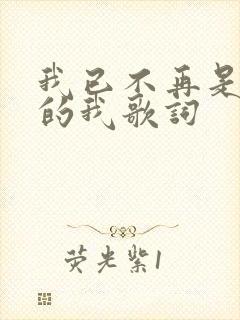 我已不再是
的我歌詞
荧光紫1